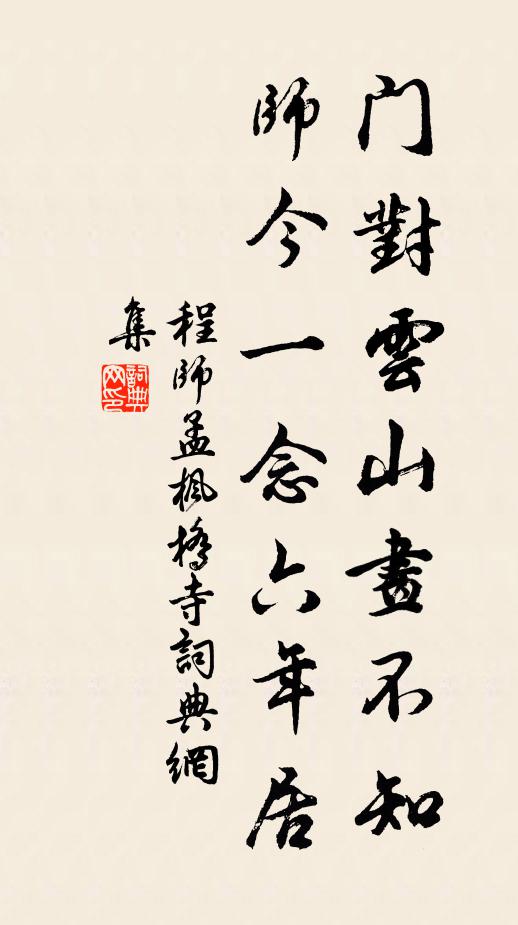 門對雲山畫不知
師今一念六年居
程師孟楓橋寺詞典網
集
詞典
网印